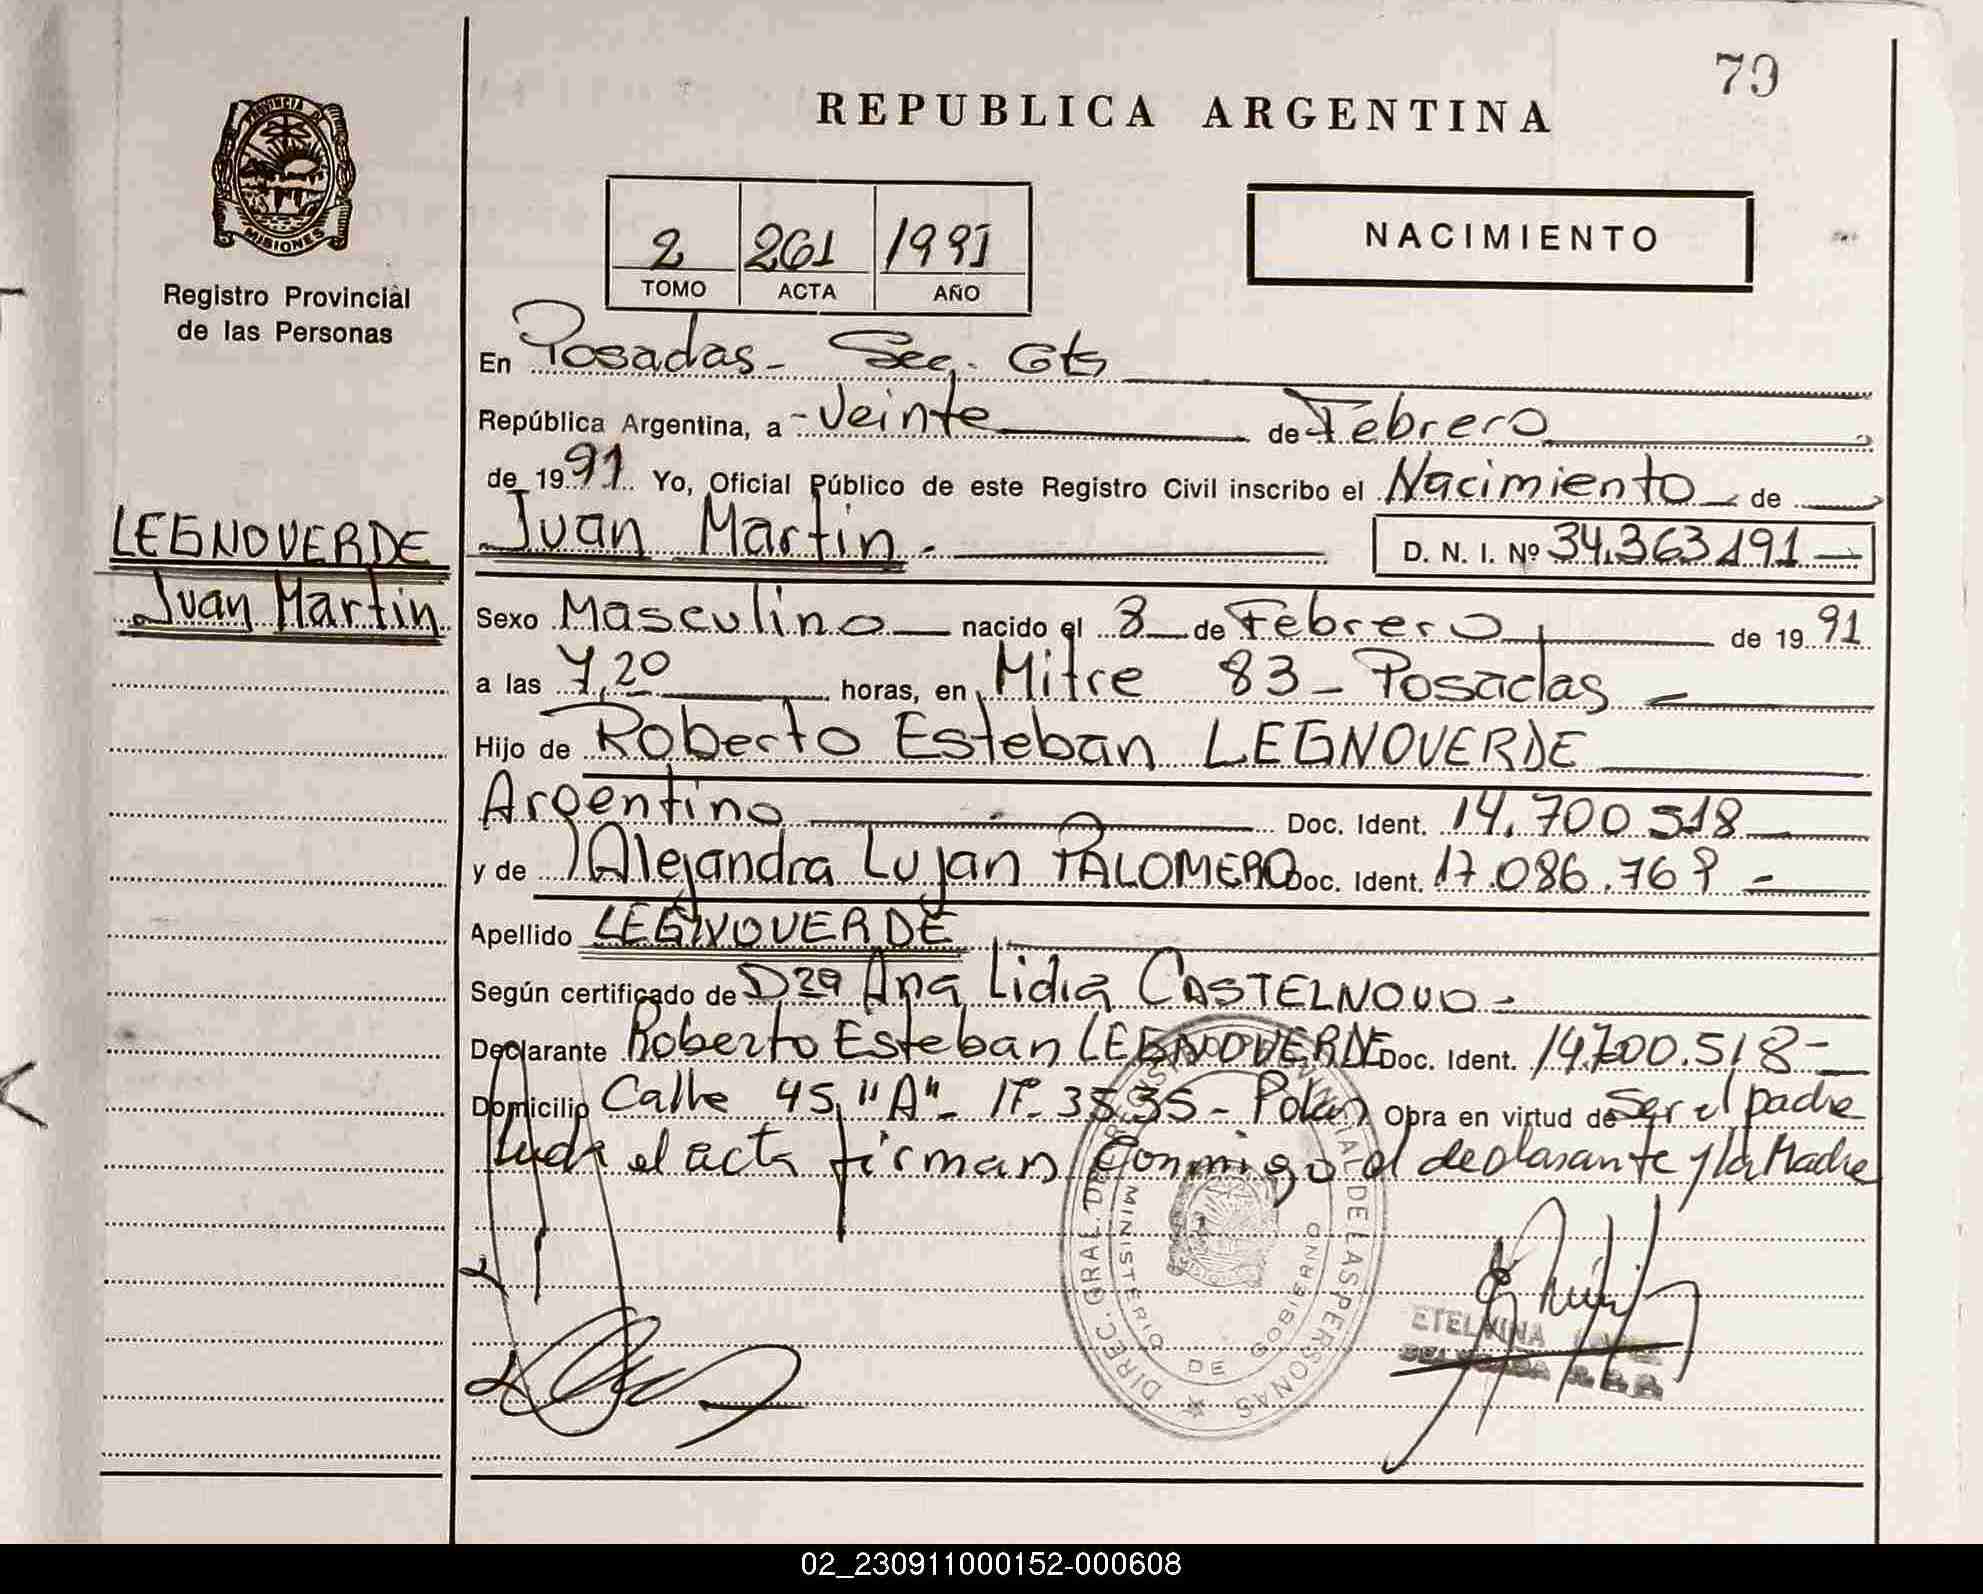 79
REPUBLICA ARGENTINA
PROVINCIA D
MISIONES
Registro Provincial
de las Personas
2 261 1991
TOMO ACTA AÑO
NACIMIENTO
En Posadas - Sec. Gts
República Argentina, a - Veinte de Febrero
de 1991. Yo, Oficial Público de este Registro Civil inscribo el Nacimiento de
LEGNOVERDE
Juan Martin
Juan Martin. - D. N. I. Nº 34.363191
Sexo Masculino nacido el 8 de Febrero de 1991
a las 7,20 horas, en Mitre 83 - Posadas
Hijo de Roberto Esteban LEGNOVERDE
Argentino Doc. Ident. 14.700 518
y de Alejandra Lujan PALOMERO Doc. Ident. 17.086.76
Apellido LEGNOVERDE
Según certificado de Ana Lidia CASTELNOVO -
Declarante Roberto Esteban LEGNOVERDE Doc. Ident. 14.700.518 -
Domicilio Calle 45 "A" - Nº 3535 - Obra en virtud de Ser el padre
Leida el acta firman conmigo el declarante y la Madre
DIREC. GRAL. DEL DE LAS PERSONAS
MINISTERIO DE GOBIERNO
MISIONES
ETELVINA
02_230911000152-000608